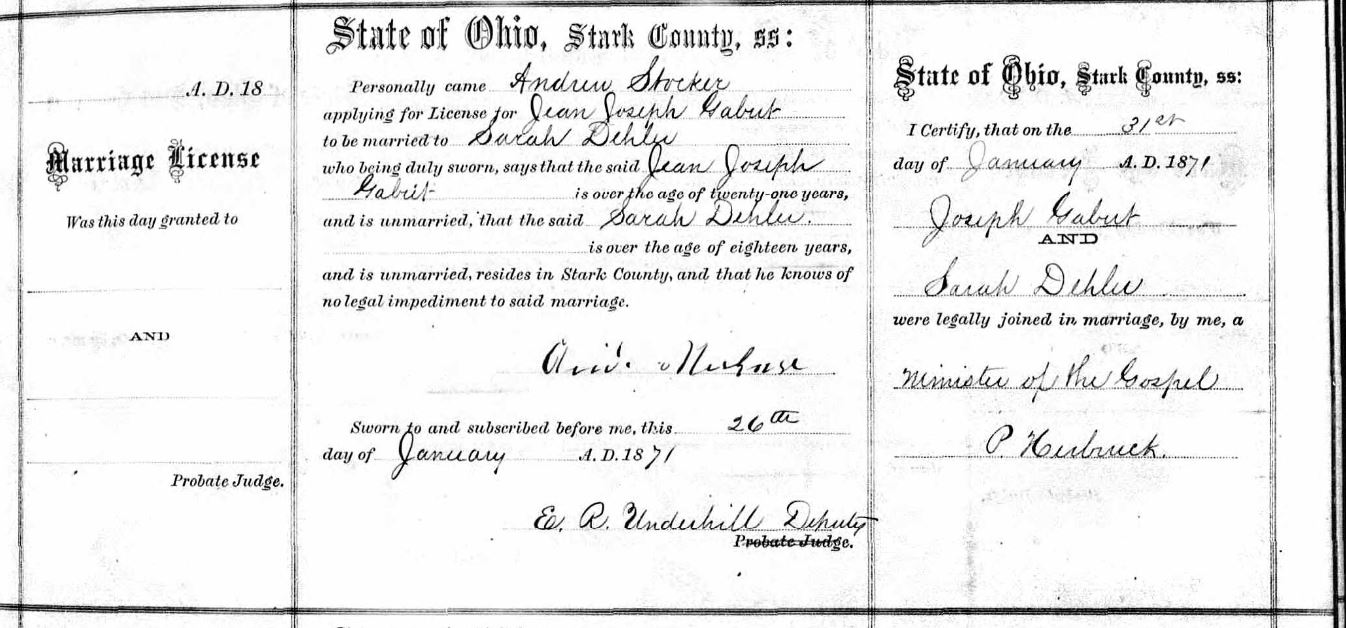 A. D. 18
Marriage License
Was this day granted to
AND
Probate Judge.
State of Ohio, Stark County, ss:
Personally came Andrew Stocker
applying for License for Jean Joseph Gabut
to be married to Sarah Dehler
who being duly sworn, says that the said Jean Joseph
Gabut is over the age of twenty-one years,
and is unmarried, that the said Sarah Dehler.
is over the age of eighteen years,
and is unmarried, resides in Stark County, and that he knows of
no legal impediment to said marriage.
Sworn to and subscribed before me, this 26th
day of January A. D. 1871
E. R. Underhill Deputy
Probate Judge.
State of Ohio, Stark County, ss:
I Certify, that on the 31st
day of January A. D. 1871
Joseph Gabut
AND
Sarah Dehler
were legally joined in marriage, by me, a
Minister of the Gospel
P. Herbruck.